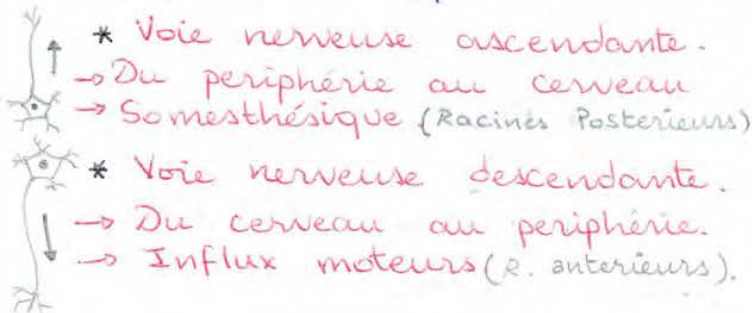 * Voie nerveuse ascendante.
→ Du periphérie au cerveau
→ Somesthésique (Racines Posterieurs)
* Voie nerveuse descendante.
→ Du cerveau au periphérie.
→ Influx moteurs (R. anterieurs).